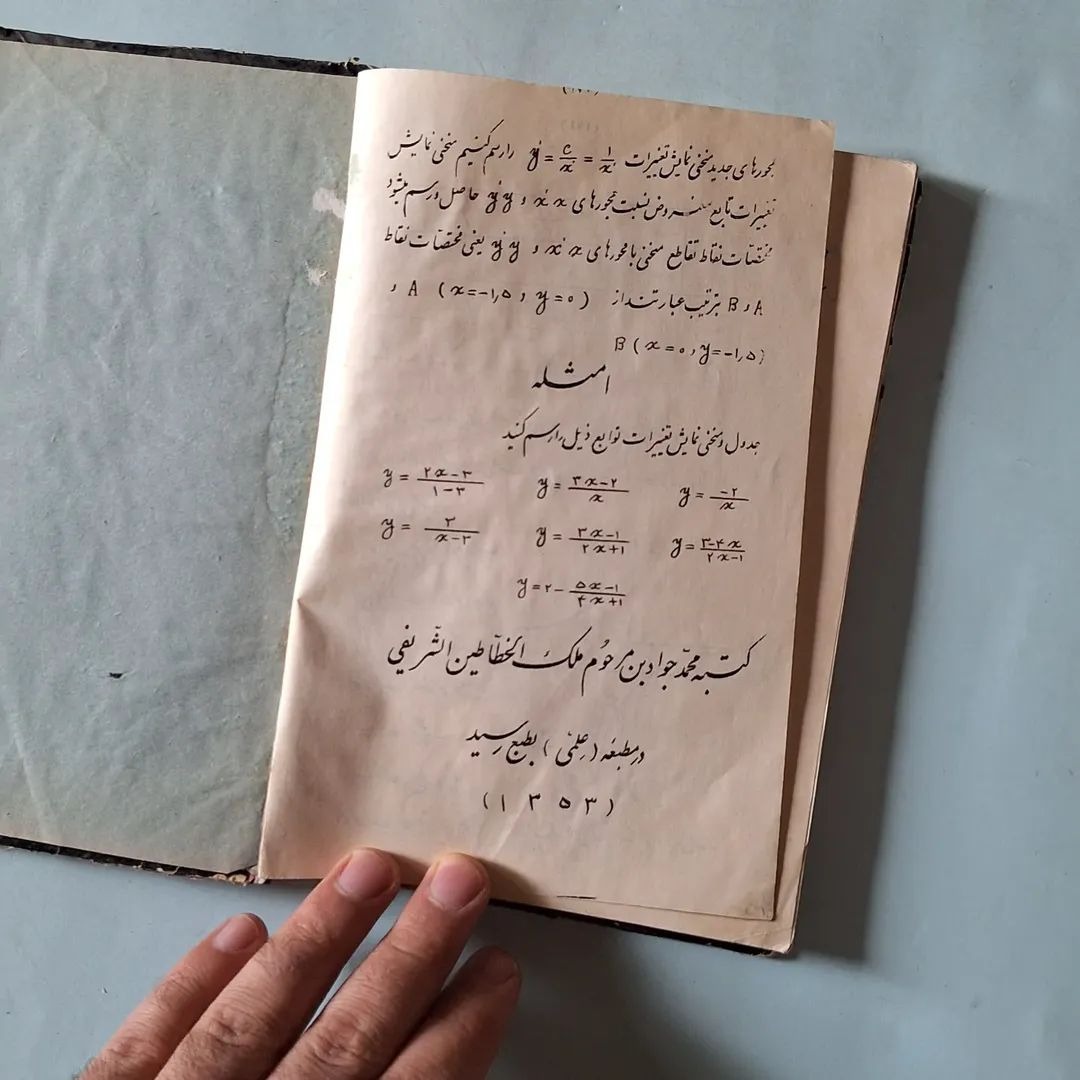 محورهای جدید منحنی نمایش تغییرات y = c/x = 1/x را رسم کنیم منحنی نمایش
تغییرات تابع مفروض نسبت بمحورهای x′x و y′y حاصل و رسم میشود
مختصات نقاط تقاطع منحنی با محورهای x′x و y′y یعنی مختصات نقاط
A و B بترتیب عبارتند از A (x=-۱٫۵ , y=۰) و
B (x=۰ , y=-۱٫۵)
امثله
جدول و منحنی نمایش تغییرات توابع ذیل را رسم کنید
y = -۲/x    y = (۳x-۲)/x    y = (۲x-۳)/(۱-۳)
y = (۳-۴x)/(۲x-۱)    y = (۳x-۱)/(۲x+۱)    y = ۳/(x-۳)
y = ۲ - (۵x-۱)/(۴x+۱)
کتبه محمّد جواد بن مرحوم ملک الخطّاطین الشّریفی
در مطبعه (علمی) بطبع رسید
(۱۳۵۳)